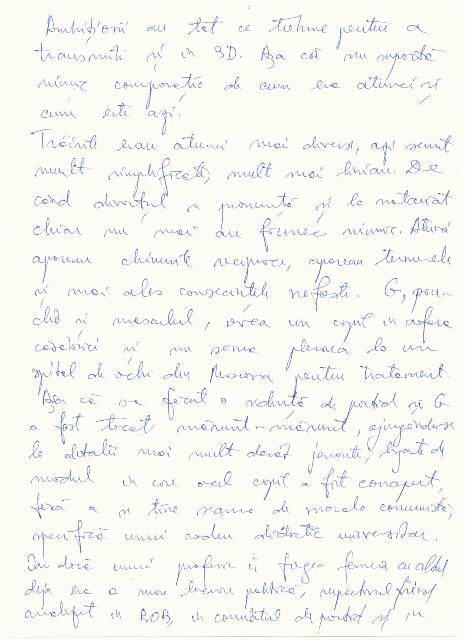 Ambițioșii au tot ce trebuie pentru a
transmite și în 3D. Așa că nu suportă
nimic comparație de cum era atunci și
cum este azi.
Trăirile erau atunci mai diverse, azi sunt
mult simplificate, mult mai liniare. De
când divorțul se pronunță și la notariat
chiar nu mai are farmec nimic. Atunci
apăreau chinurile reciproce, apăreau temerile
și mai ales consecințele nefaste. G,
și masculul, avea un copil în afara
căsătoriei și nu semna plecarea la un
spital de ochi din Moscova pentru tratament.
Așa că s-a făcut o ședință de partid și G
a fost tocat mărunt-mărunt, ajungându-se
la detalii mai mult decât jenante, legate de
modul în care acel copil a fost conceput,
fără a se ține seama de morala comunistă,
specifică unui cadru didactic universitar.
Iar dacă unui profesor îi fugea femeia cu altul
deja era o mare lucrare publică, respectivul fiind
analizat în BOB, în comitetul de partid și în